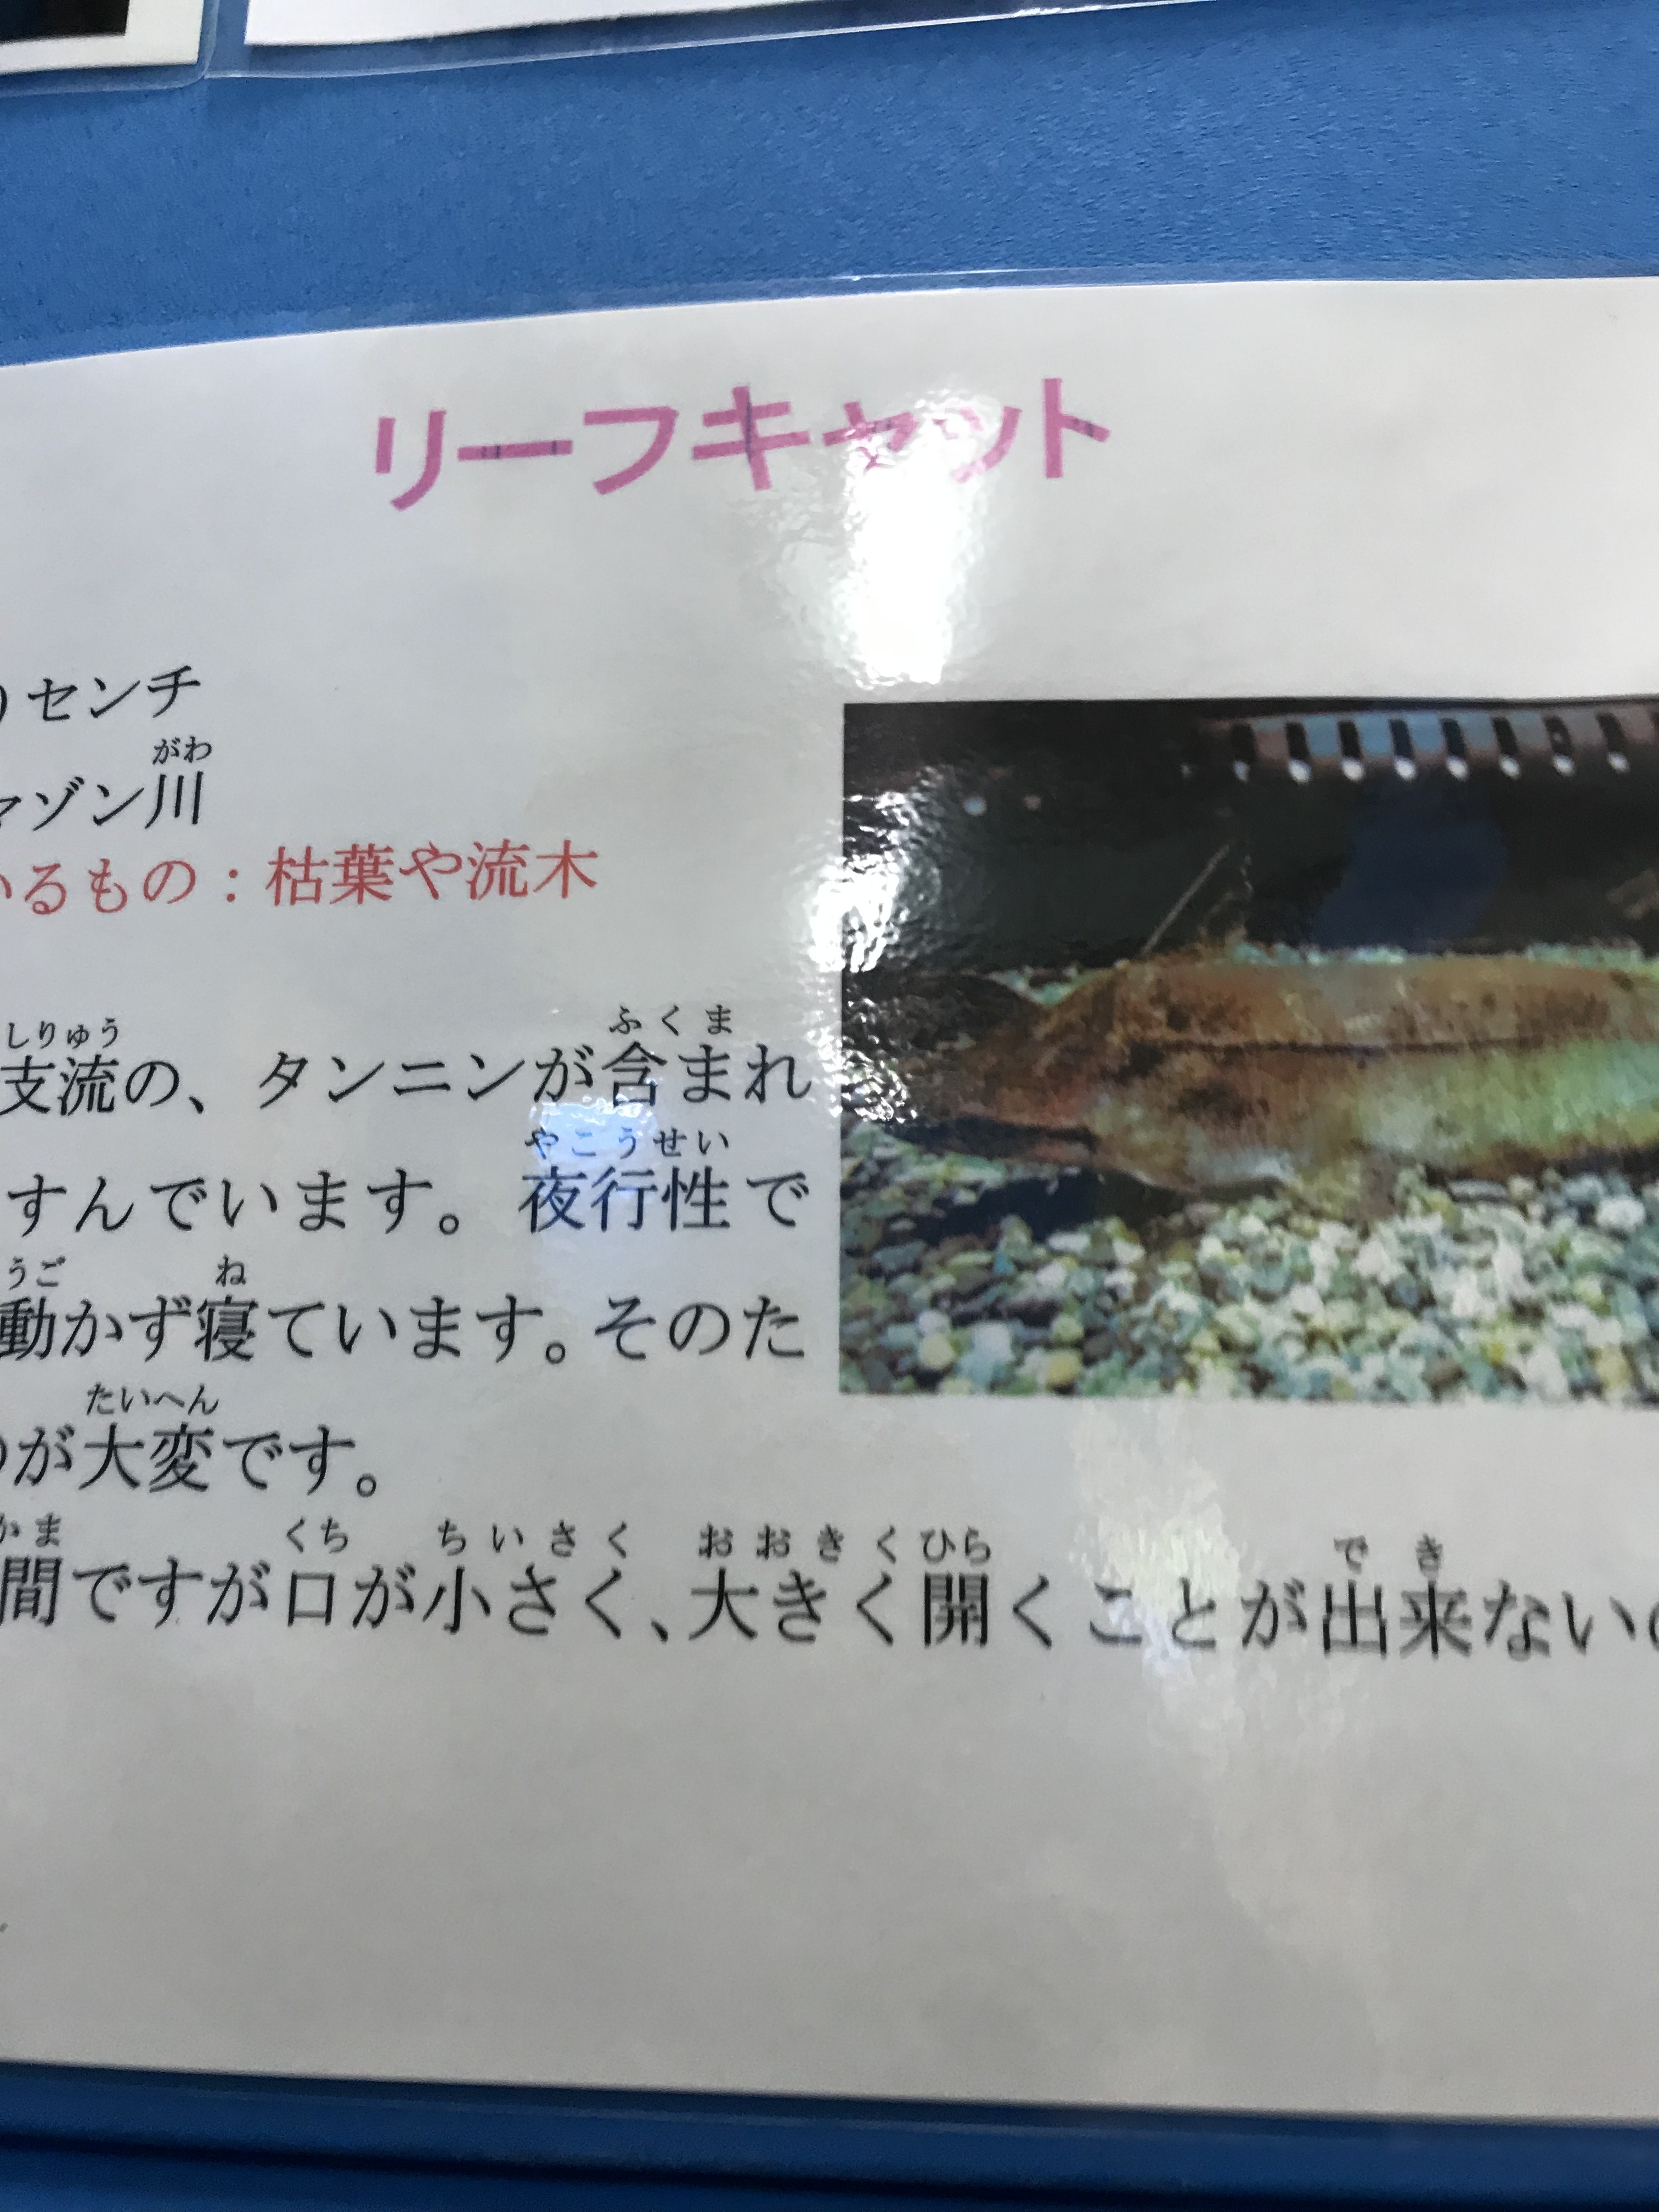 リーフキャット
センチ
マゾン川
いるもの：枯葉や流木
支流の、タンニンが含まれ
すんでいます。夜行性で
動かず寝ています。そのた
が大変です。
間ですが口が小さく、大きく開くことが出来ない